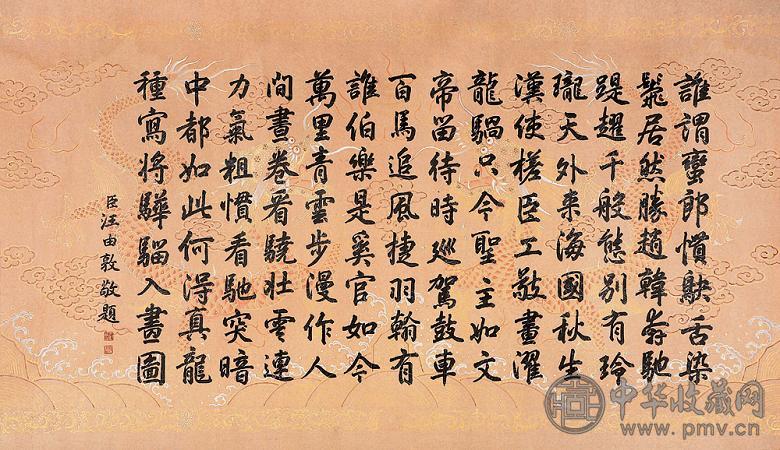 誰謂蠻郎慣駃舌染
居然勝趙韓奔馳
踶趯千般態別有玲
瓏天外来海國秋生
漢使槎臣工敬畫濯
龍騧只今聖主如文
帝留待時巡駕鼓車
百馬追風捷羽翰有
誰伯樂是奚官如今
萬里青雲步漫作人
間畫卷看驍壮雲連
力氣粗慣看馳突暗
中都如此何淂真龍
種寫将驊騮入畫圖
臣汪由敦敬題
中华收藏网
www.pmv.cn